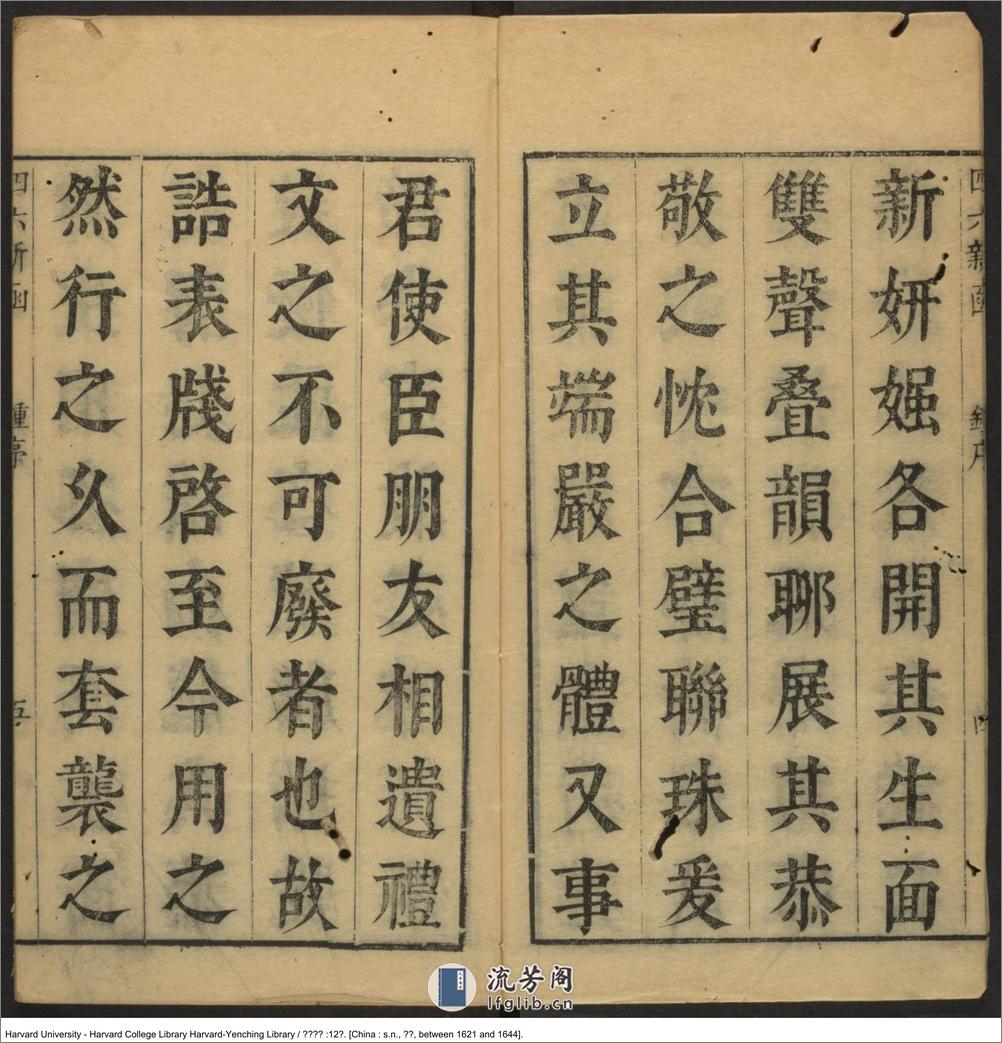 四六新函 鍾序 四
新妍嫋各開其生面
雙聲疊韻聊展其恭
敬之忱合璧聯珠爰
立其端嚴之體又事
君使臣朋友相遺禮
文之不可廢者也故
誥表牋啓至今用之
然行之久而套襲之
四六新函 鍾序 五
流芳阁
lfglib.cn
Harvard University - Harvard College Library Harvard-Yenching Library / ???? :12?. [China : s.n., ??, between 1621 and 1644].